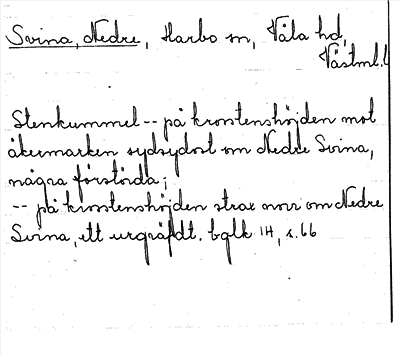 Svina, Nedre, Harbo sn, Våla hd,
Västml. l
Stenkummel -- på krosstenshöjden mot
åkermarken sydsydost om Nedre Svina,
några förstörda;
-- på krosstenshöjden strax norr om Nedre
Svina, ett urgräfdt. bglk 14, s. 66